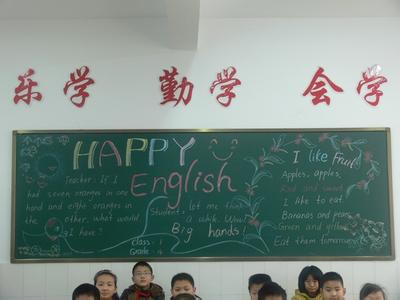 乐学 勤学 会学
HAPPY
English
Teacher: If I
had seven oranges in one
hand and eight oranges in
the other, what would
I have?
Student: let me think
a while. Wow!
Big hands!
Class: 1
Grade: 4
I like fruit
Apples, apples,
Red and sweet
I like to eat.
Bananas and pears
Green and yellow
Eat them tomorrow